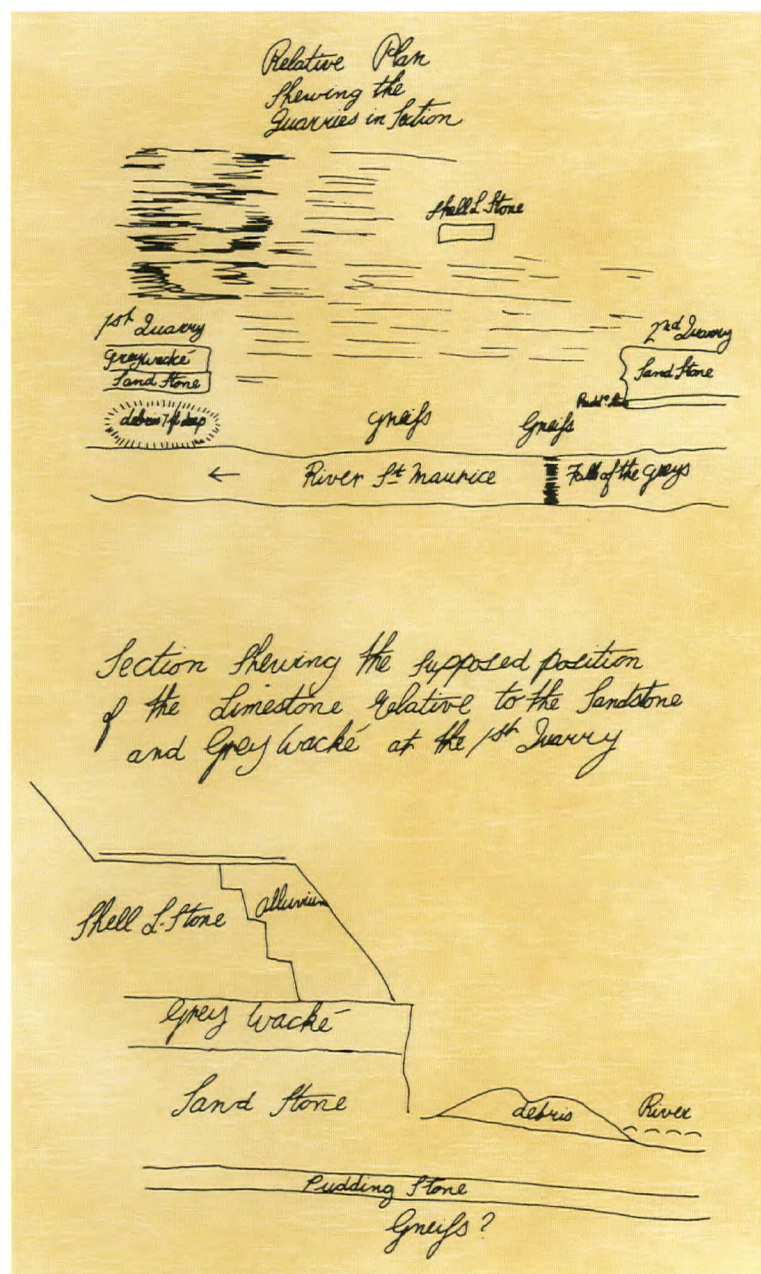 Relative Plan
Shewing the
Quarries in Section
Shell L Stone
1st Quarry
2nd Quarry
Greywacké
Sand Stone
Sand Stone
debris 7 ft deep
Gneiſs
Gneiſs
← River St Maurice
Falls of the Greys
Section Shewing the Supposed position
of the Limestone Relative to the Sandstone
and Grey Wacké at the 1st Quarry
Shell L. Stone
Alluvium
Grey Wacké
Sand Stone
debris
River
Pudding Stone
Gneiſs?